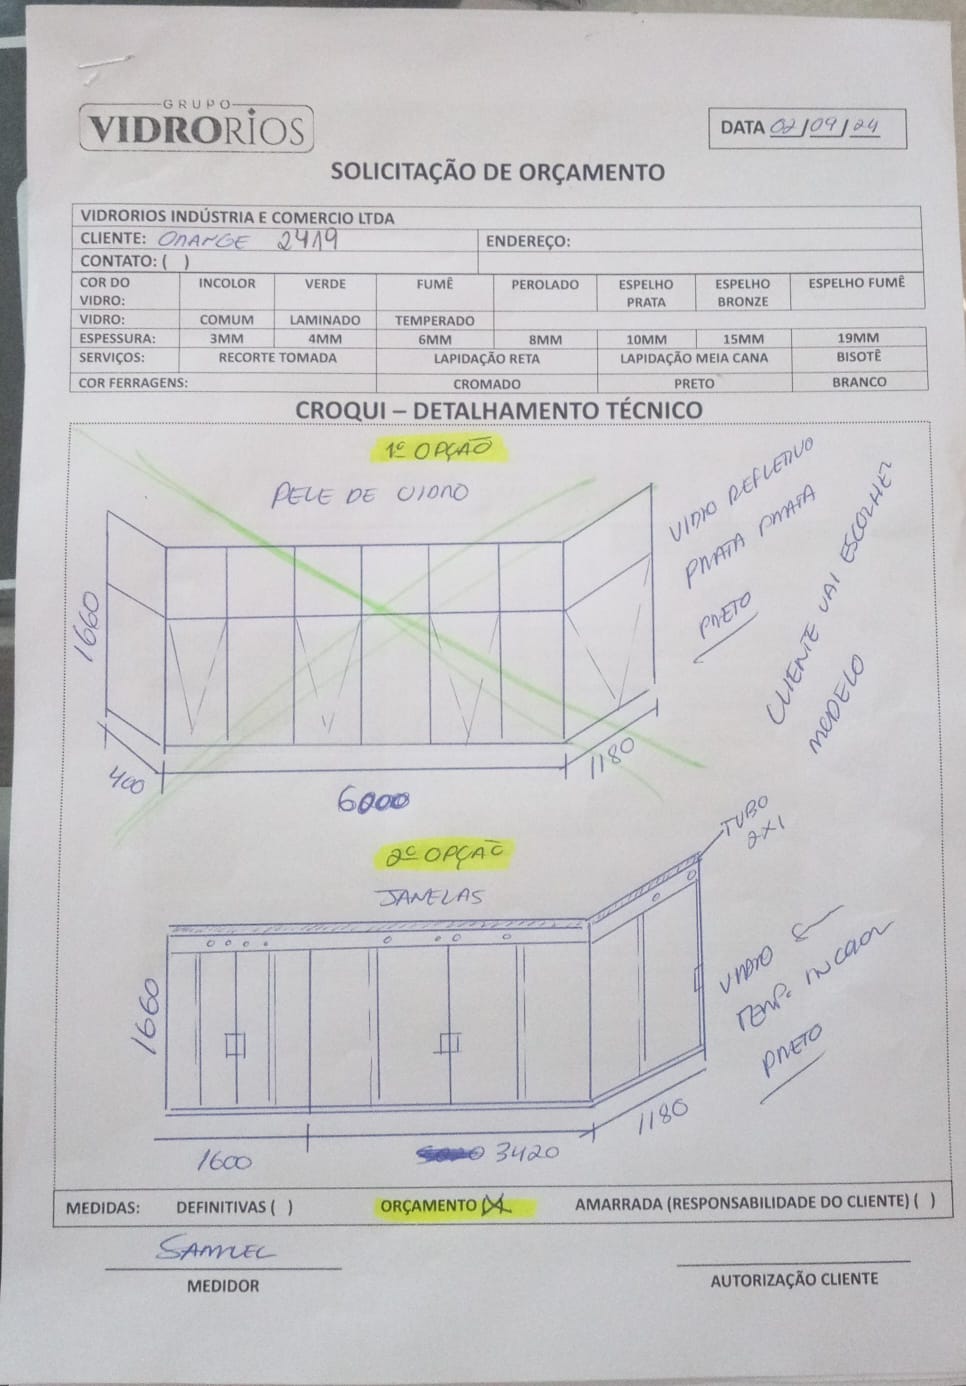 GRUPO
VIDRORIOS
DATA 02/09/24
SOLICITAÇÃO DE ORÇAMENTO
VIDRORIOS INDÚSTRIA E COMERCIO LTDA
CLIENTE: ORANGE 2419
ENDEREÇO:
CONTATO: ( )
COR DO VIDRO: INCOLOR VERDE FUMÊ PEROLADO ESPELHO PRATA ESPELHO BRONZE ESPELHO FUMÊ
VIDRO: COMUM LAMINADO TEMPERADO
ESPESSURA: 3MM 4MM 6MM 8MM 10MM 15MM 19MM
SERVIÇOS: RECORTE TOMADA LAPIDAÇÃO RETA LAPIDAÇÃO MEIA CANA BISOTÊ
COR FERRAGENS: CROMADO PRETO BRANCO
CROQUI – DETALHAMENTO TÉCNICO
1º OPÇÃO
PELE DE VIDRO
VIDRO REFLETIVO
PRATA PRATA
PRETO
CLIENTE VAI ESCOLHER
MODELO
1660
400
6000
1180
2º OPÇÃO
JANELAS
TUBO
2X1
VIDRO 8
TEMP. INCOLOR
PRETO
1660
1600
3420
1180
MEDIDAS: DEFINITIVAS ( ) ORÇAMENTO (X) AMARRADA (RESPONSABILIDADE DO CLIENTE) ( )
SAMUEL
MEDIDOR
AUTORIZAÇÃO CLIENTE